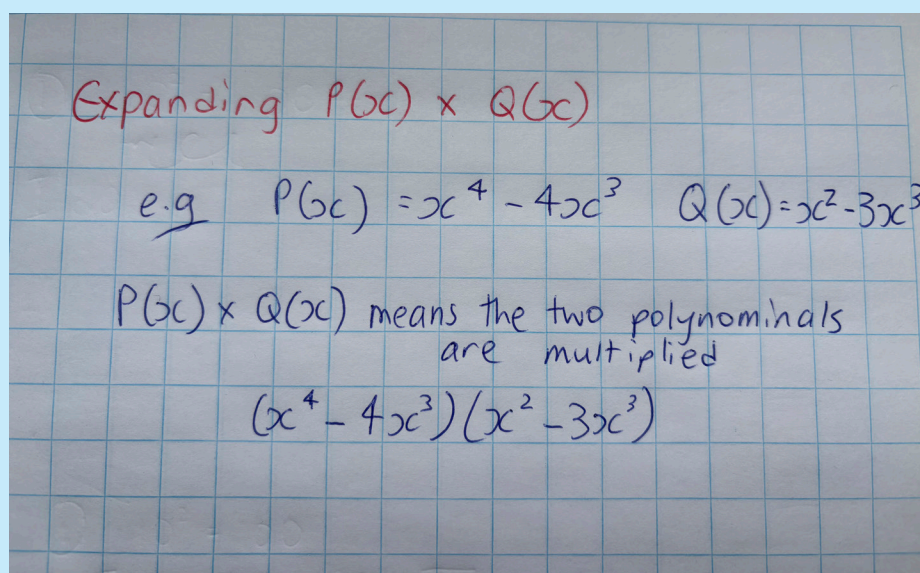 Expanding P(x) x Q(x)
e.g P(x) = x⁴ - 4x³ Q(x) = x² - 3x³
P(x) x Q(x) means the two polynominals
are multiplied
(x⁴ - 4x³)(x² - 3x³)